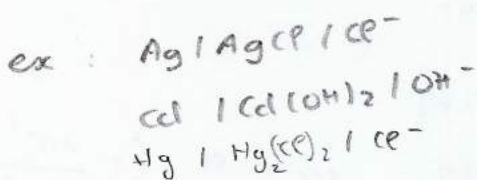 ex : Ag / AgCl / Cl⁻
Cd / Cd(OH)₂ / OH⁻
Hg / Hg₂(Cl)₂ / Cl⁻